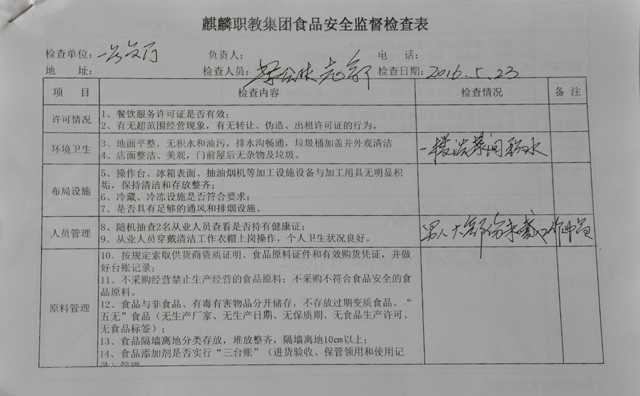 麒麟职教集团食品安全监督检查表
检查单位: 负责人: 电 话:
地 址: 检查人员: 检查日期: 2016.5.23
项 目 检查内容 检查情况 备 注
许可情况
1、餐饮服务许可证是否有效;
2、有无超范围经营现象,有无转让、伪造、出租许可证的行为。
环境卫生
3、地面平整,无积水和油污,排水沟畅通,垃圾桶加盖并外观清洁
4、店面整洁、美观,门前屋后无杂物及垃圾。
一楼洗菜间积水
布局设施
5、操作台、冰箱表面、抽油烟机等加工设施设备与加工用具无明显积
垢,保持清洁和存放整齐;
6、冷藏、冷冻设施是否符合要求;
7、是否具有足够的通风和排烟设施。
人员管理
8、随机抽查2名从业人员查看是否持有健康证;
9、从业人员穿戴清洁工作衣帽上岗操作,个人卫生状况良好。
原料管理
10、按规定索取供货商资质证明、食品原料证件和有效购货凭证,并做
好台账记录;
11、不采购经营禁止生产经营的食品原料;不采购不符合食品安全的食
品原料。
12、食品与非食品、有毒有害物品分开储存,不存放过期变质食品、“
五无”食品(无生产厂家、无生产日期、无保质期、无食品生产许可、
无食品标签);
13、食品隔墙离地分类存放,堆放整齐,隔墙离地10cm以上;
14、食品添加剂是否实行“三台账”(进货验收、保管领用和使用记